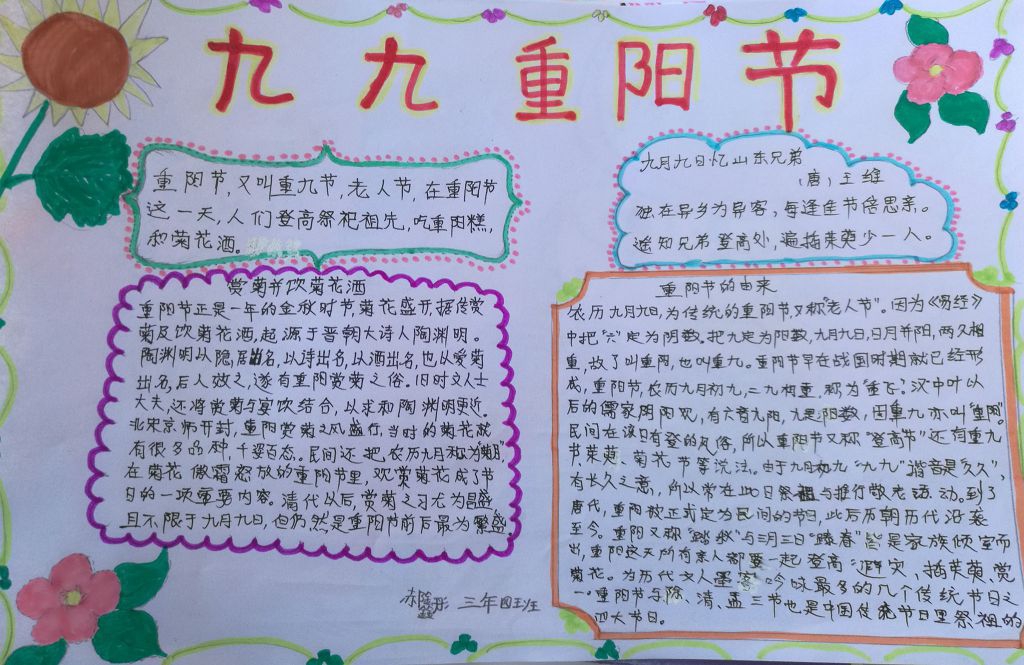 九九重阳节
重阳节,又叫重九节,老人节,在重阳节
这一天,人们登高祭祀祖先,吃重阳糕,
和菊花酒。
九月九日忆山东兄弟
(唐)王维
独在异乡为异客,每逢佳节倍思亲。
遥知兄弟登高处,遍插茱萸少一人。
赏菊并饮菊花酒
重阳节正是一年的金秋时节,菊花盛开,据传赏
菊及饮菊花酒,起源于晋朝大诗人陶渊明。
陶渊明以隐居出名,以诗出名,以酒出名,也以爱菊
出名,后人效之,遂有重阳赏菊之俗。旧时文人士
大夫,还将赏菊与宴饮结合,以求和陶渊明更近。
北宋京师开封,重阳赏菊之风盛行,当时的菊花就
有很多品种,千姿百态。民间还把农历九月称为"菊月",
在菊花傲霜怒放的重阳节里,欢赏菊花成了节
日的一项重要内容。清代以后,赏菊之习尤为昌盛,
且不限于九月九日,但仍然是重阳节前后最为繁盛。
重阳节的由来
农历九月九日,为传统的重阳节,又称"老人节"。因为《易经》
中把"六"定为阴数,把九定为阳数,九月九日,日月并阳,两九相
重,故了叫重阳,也叫重九。重阳节早在战国时期就已经形
成,重阳节,农历九月初九,二九相重,称为"重九"。汉中叶以
后的儒家阴阳观,有六阴九阳,九是阳数,因重九亦叫"重阳"。
民间在该日有登的风俗,所以重阳节又称"登高节"还有重九
节、茱萸、菊花节等说法。由于九月初九"九九"谐音是"久久",
有长久之意,所以常在此日祭祖与推行敬老活动。到了
唐代,重阳被正式定为民间的节日,此后历朝历代沿袭
至今。重阳又称"踏秋"与三月三日"踏春"皆是家族倾室而
出,重阳这天所有亲人都要一起登高"避灾",插茱萸、赏
菊花。为历代文人墨客今咏最多的几个传统节日之
一。重阳节与除、清、盂三节也是中国传统节日里祭祖的
四大节日。
三年四班